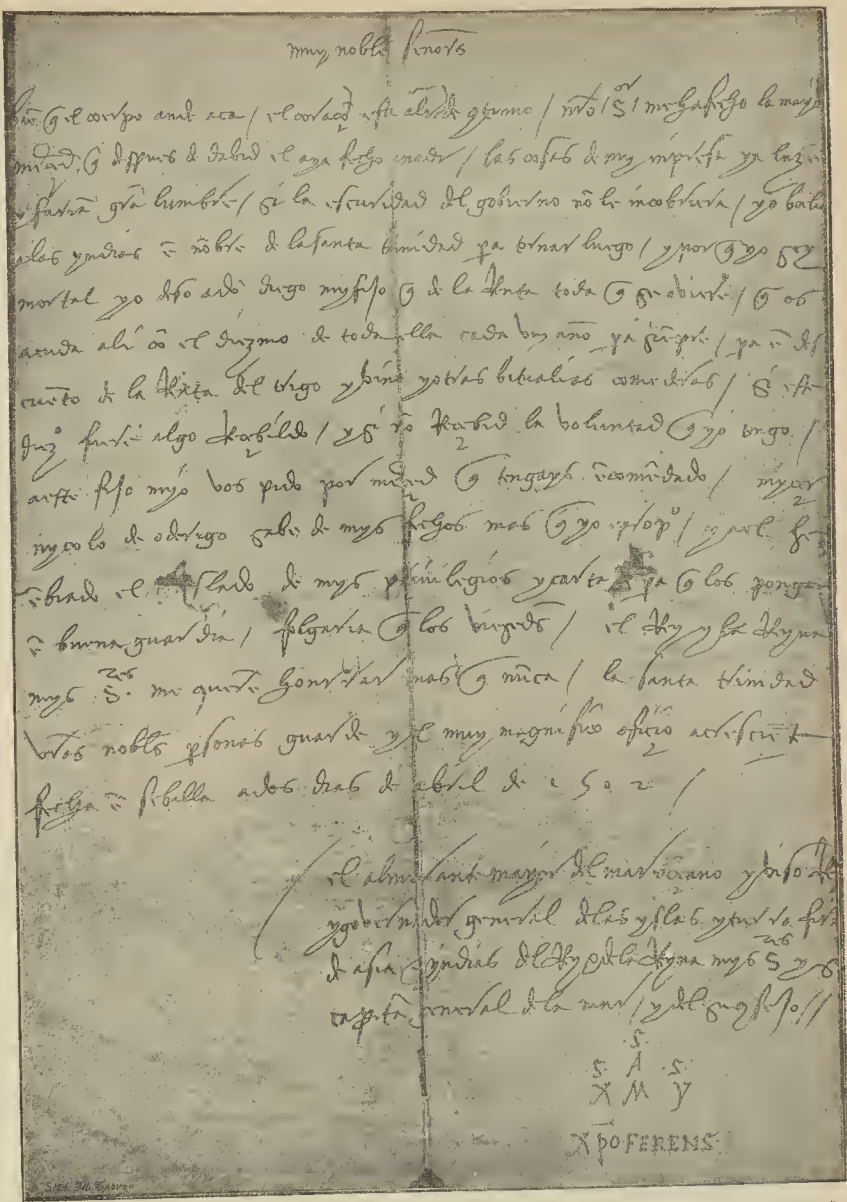 muy nobles señors
bie q el coerpo ande aca / el coraço esta ali de gtinuo / nro Sor me ha fecho la mayor
merced q despues de dabid el aya fecho anadi / las cosas de my impresa ya luzen
y faria gra lumbre / si la escuridad del gobierno no le incobriera / yo bolu
a las yndias e nobre de la santa trinidad pa tornar luego / y por q yo soy
mortal yo dexo a do diego my fijo q de la Renta toda q se obiere / q os
acuda ali co el diezmo de toda ella cada un año pa siepre / pa e des
cueto de la Reta del trigo y bino y otras bitualias comederas / si este
diezo fuere algo Recebildo / y si no Recebid la voluntad q yo tengo /
a este fijo myo vos pido por merced q tengays ecomedado / mycer
nycolo de oderigo sabe de mys fechos mas q yo propo / y a el he
ebiado el traslado de mys privilegios y cartas pa q los ponga
e buena guardia / folgaria q los viesedes / el Rey y la Reyna
mys Sres me quere honrrar mas q nuca / la santa trinidad
vras nobles psonas guarde y el muy magnifico oficio acresciete
fecha e sebilla a dos dias de abril de 1502 /
el almirante mayor del mar oceano y viso Re
y gobernador general de las yslas y tierra firme
de asia e yndias del Rey e de la Reyna mys Sres y su
capita general de la mar / y del su qsejo //
.S.
.S. A .S.
X M Y
XpoFERENS